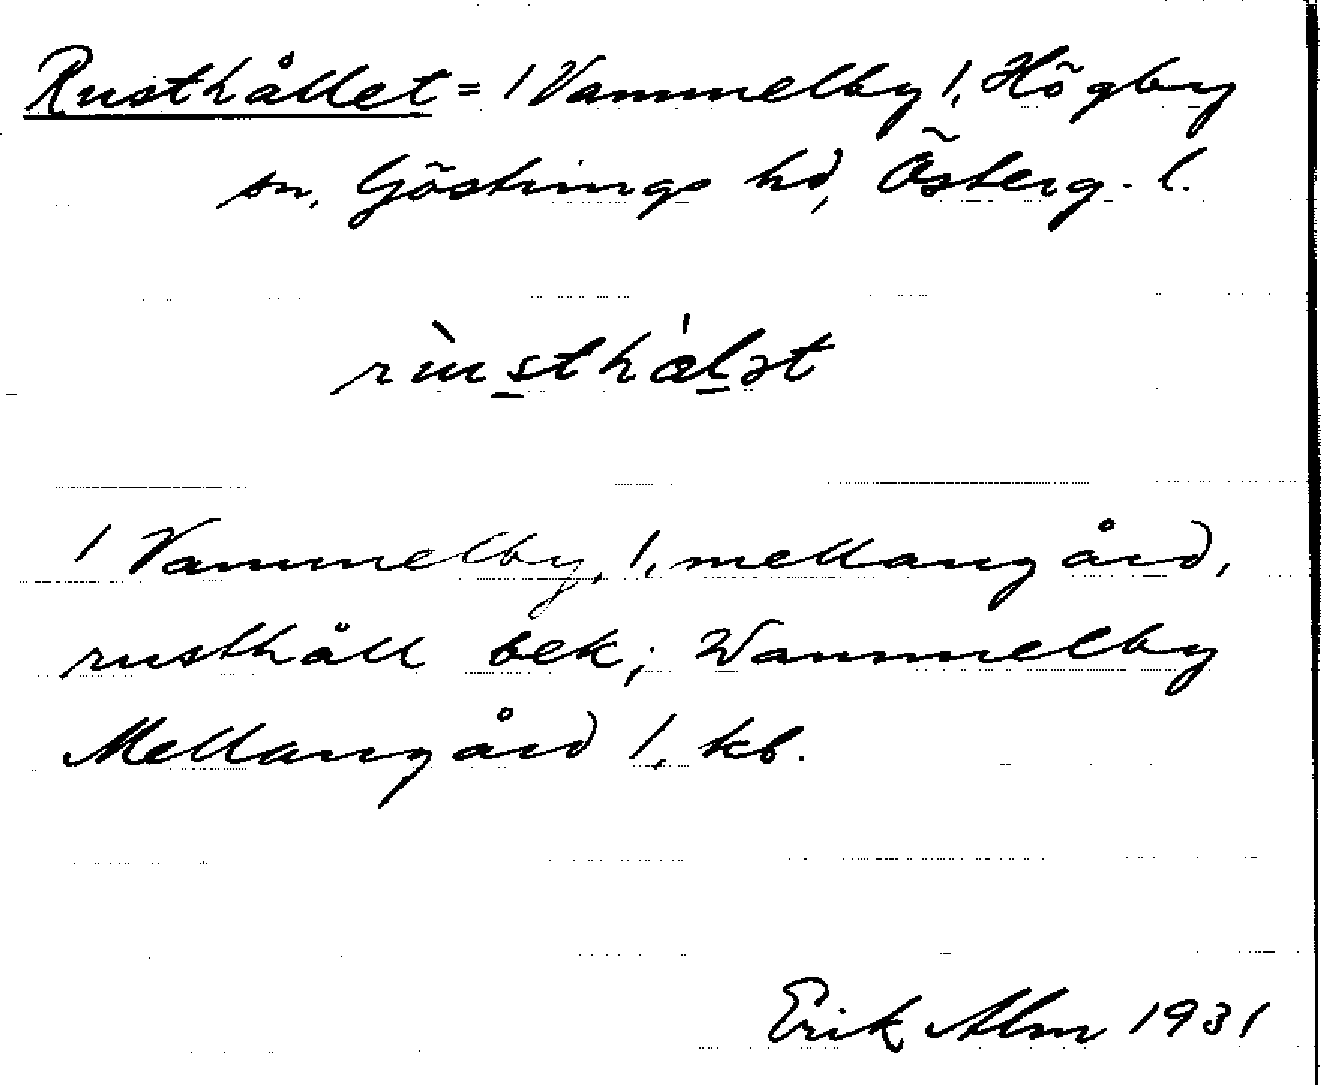 Rusthållet = 1 Vammelby 1, Högby
sn, Göstrings hd, Österg. l.
1 Vammelby, 1, mellangård,
rusthåll bek; Wammelby
Mellangård 1, kb.
Erik Alm 1931